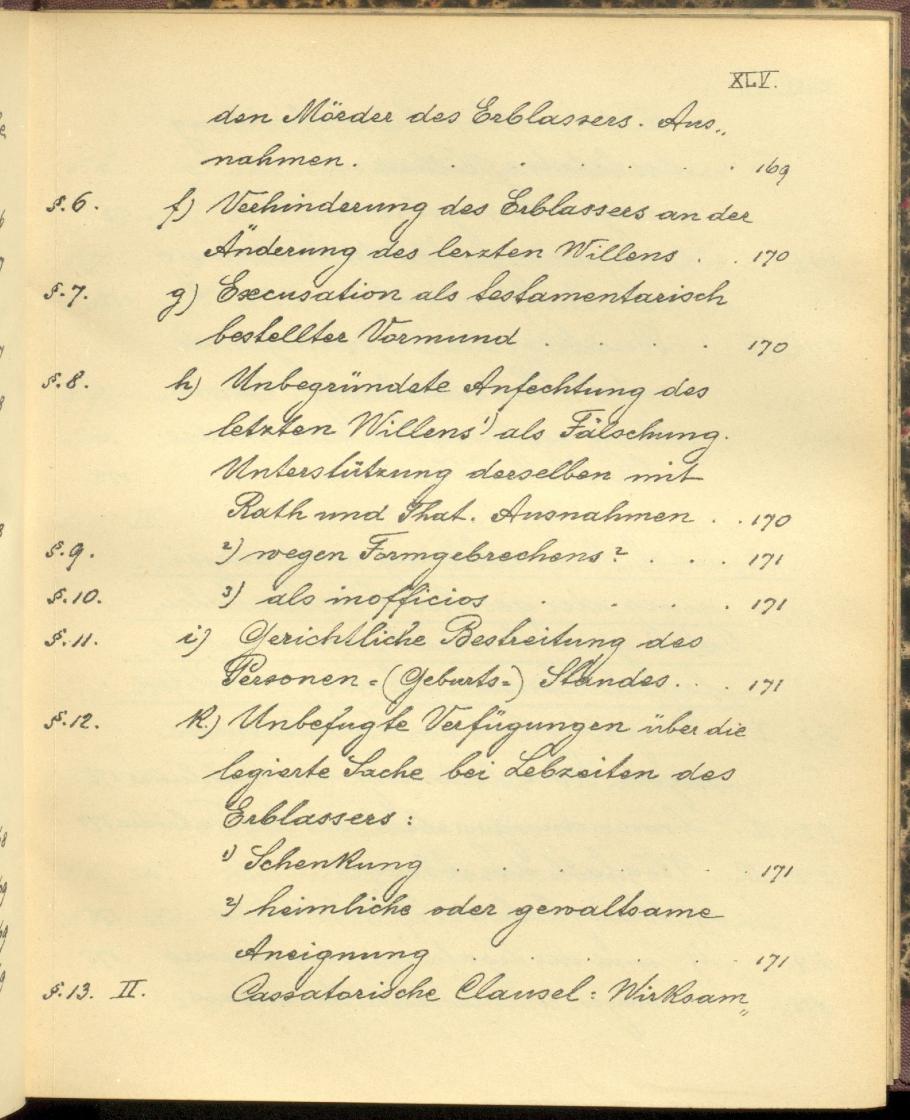 XLV.
den Mörder des Erblassers. Aus„
nahmen . . . . . . 169
§.6. f) Verhinderung des Erblassers an der
Änderung des letzten Willens . . 170
§.7. g) Excusation als testamentarisch
bestellter Vormund . . . . 170
§.8. h) Unbegründete Anfechtung des
letzten Willens ¹) als Fälschung.
Unterstützung derselben mit
Rath und That. Ausnahmen . . 170
§.9. ²) wegen Formgebrechens? . . . 171
§.10. ³) als inofficios . . . . 171
§.11. i) Gerichtliche Bestreitung des
Personen=(Geburts=) Standes. . . 171
§.12. k.) Unbefugte Verfügungen über die
legierte Sache bei Lebzeiten des
Erblassers:
¹) Schenkung . . . . 171
²) heimliche oder gewaltsame
Aneignung . . . . 171
§.13. II. Cassatorische Clausel: Wirksam„